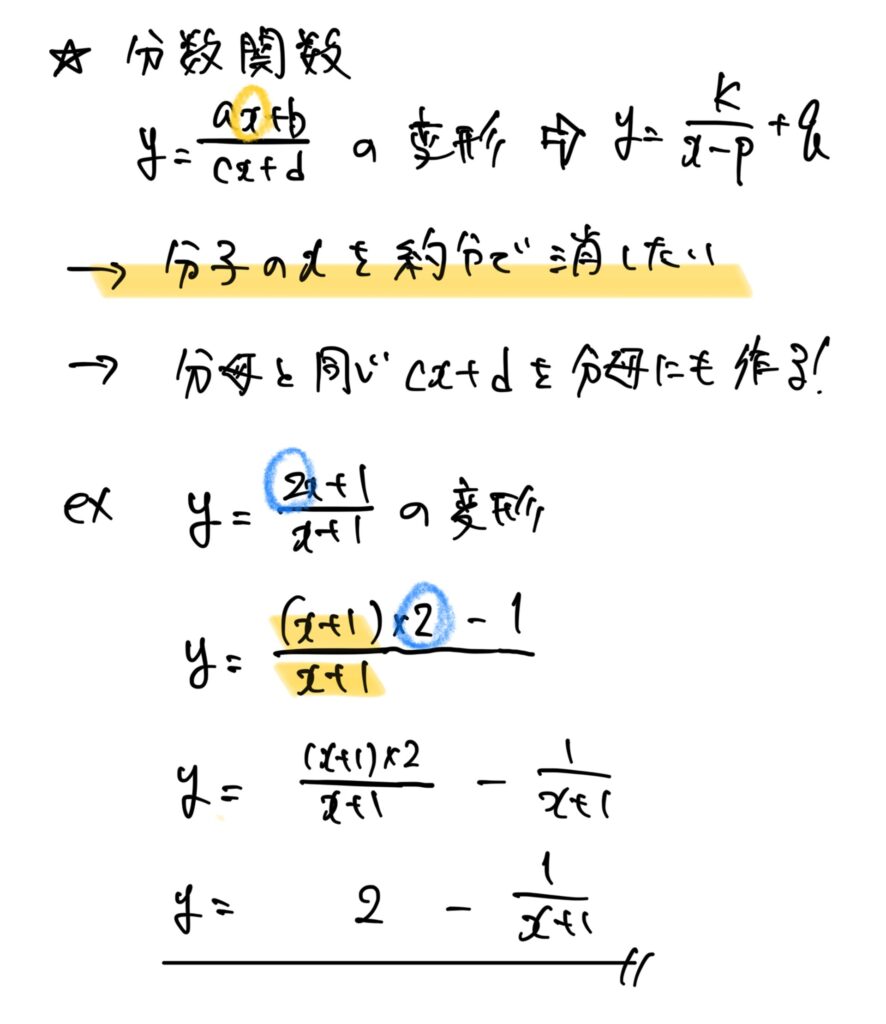 ☆ 分数関数
y = (ax+b)/(cx+d) の 変形 ⇨ y = k/(x-p) + q
→ 分子のxを約分で消したい
→ 分母と同じ cx+d を分母にも作る!
ex y = (2x+1)/(x+1) の変形
y = ((x+1)×2 - 1)/(x+1)
y = ((x+1)×2)/(x+1) - 1/(x+1)
y = 2 - 1/(x+1)